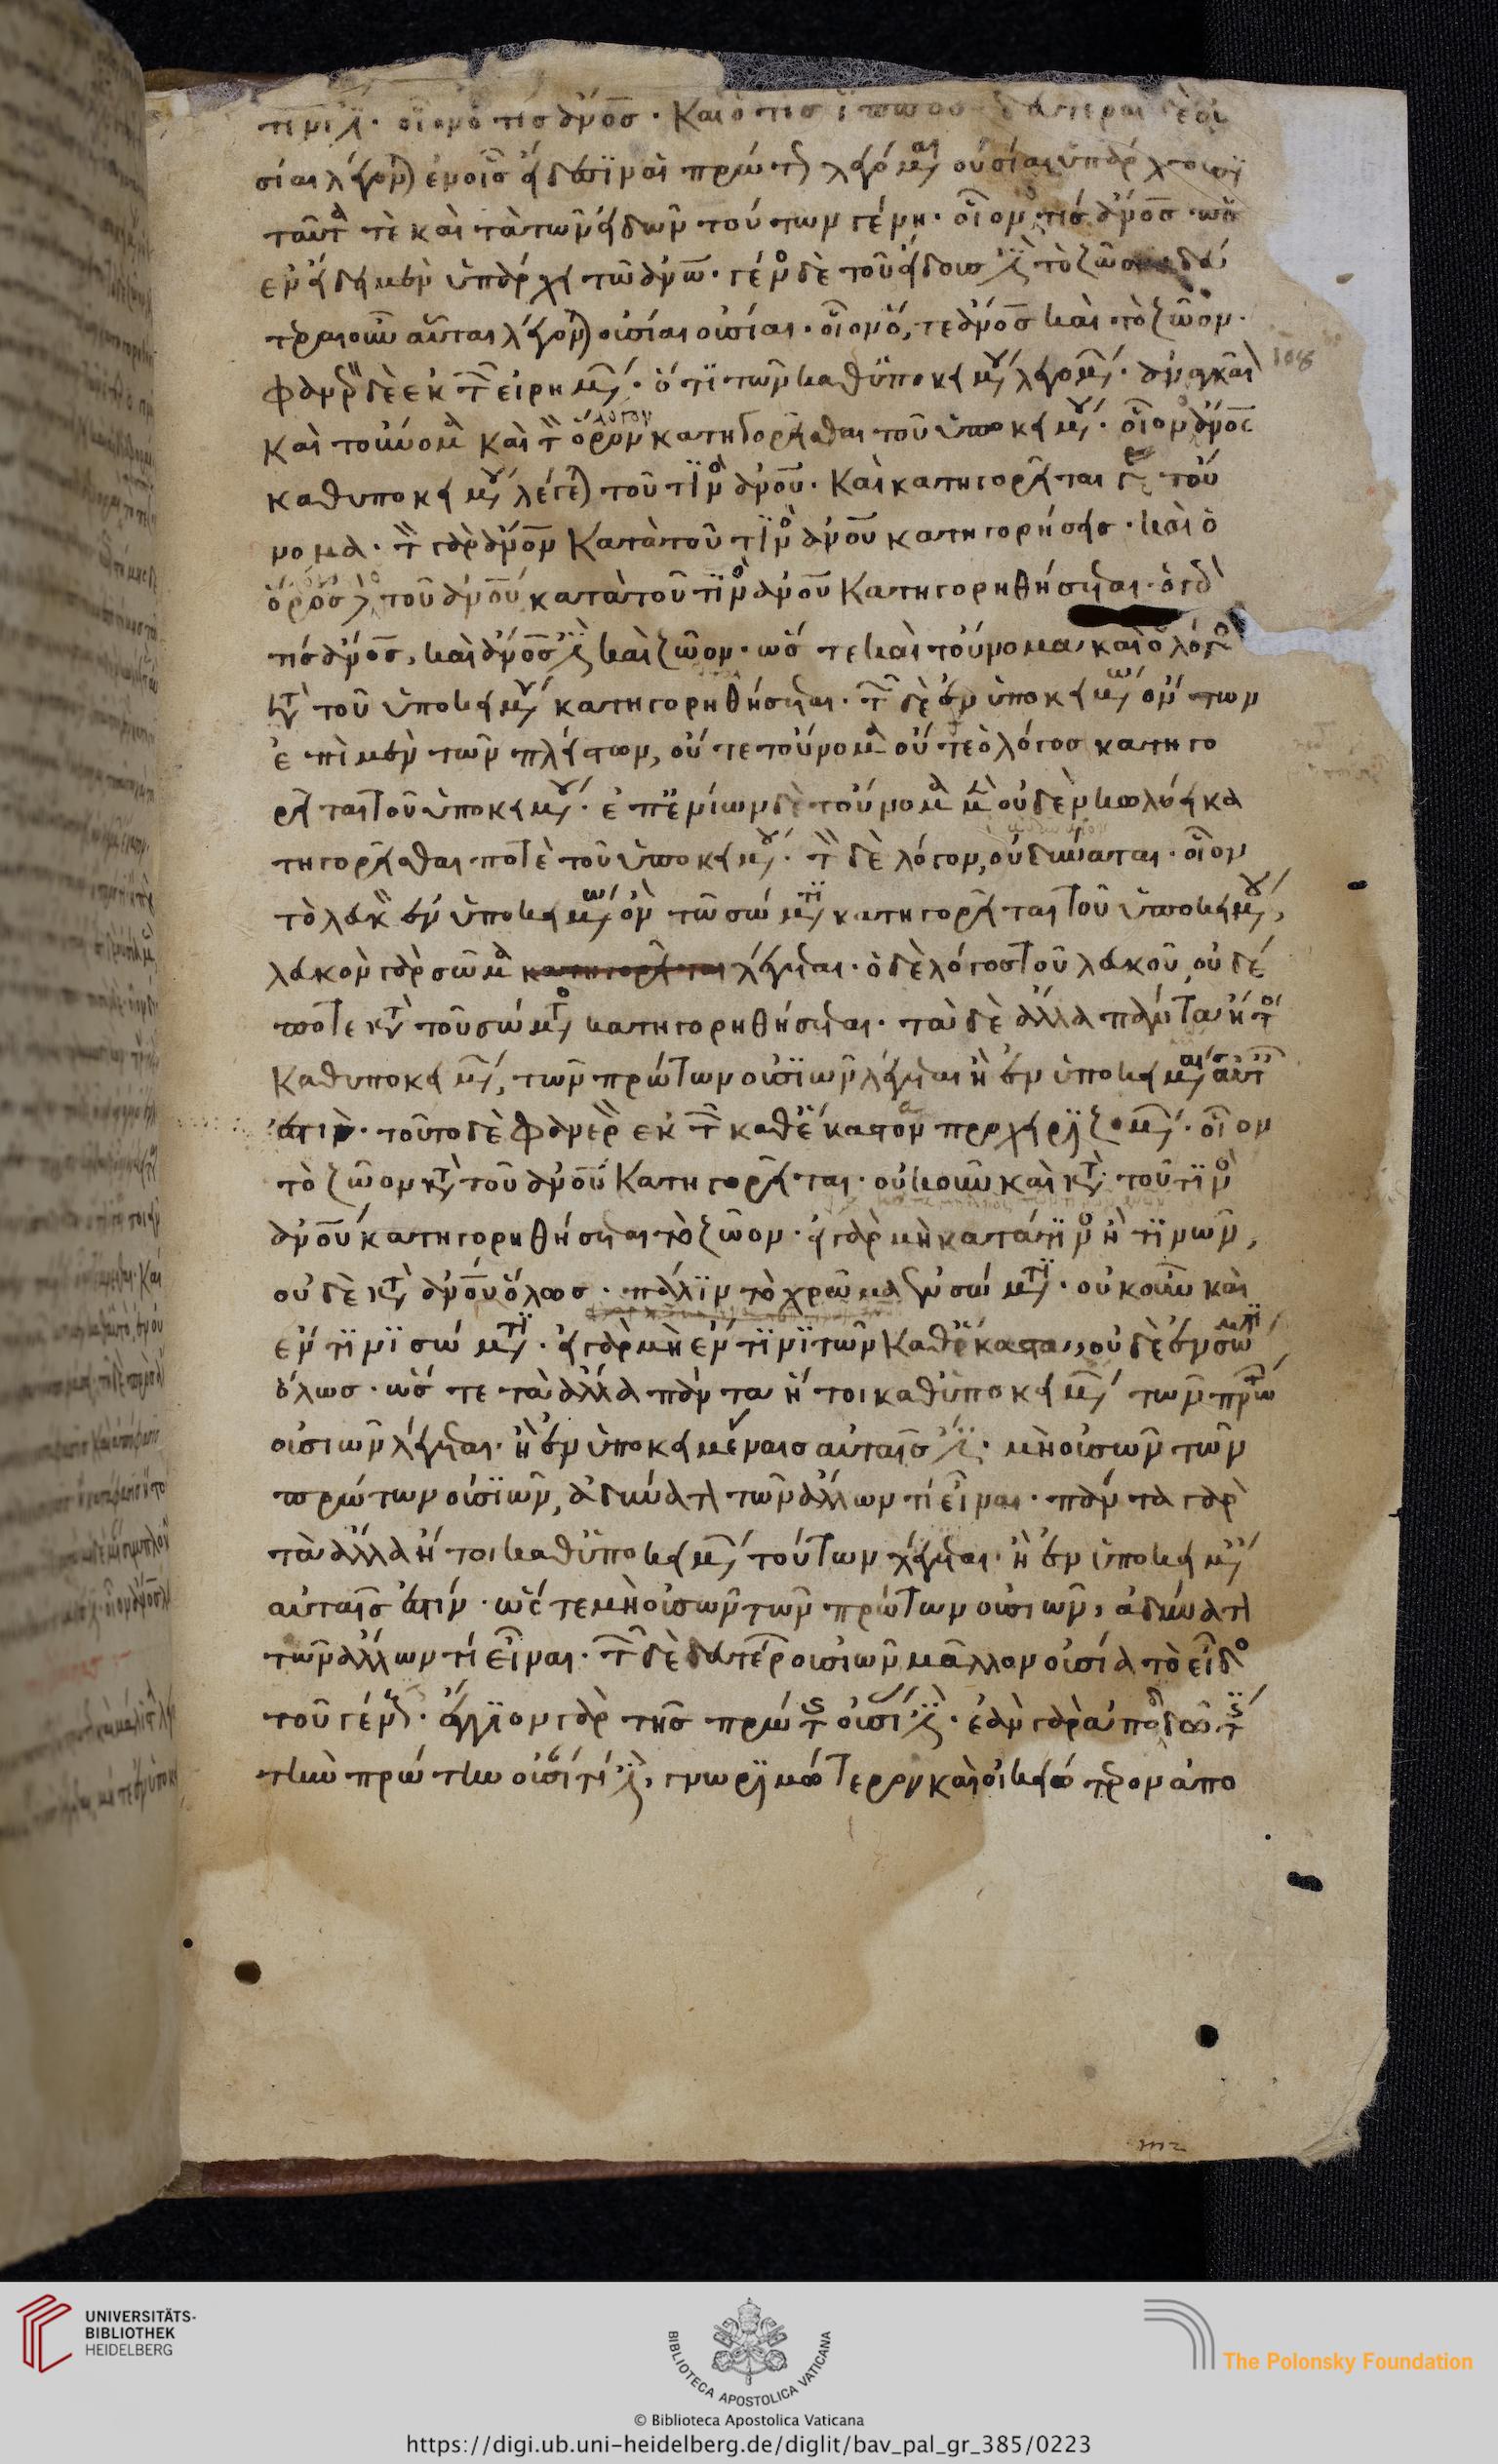 τινί ἐστιν. οἷον ὁ τὶς ἄνος. Καὶ ὁ τὶς ἵππος δεύτεραι δὲ οὐ
σίαι λέγονται ἐν οἷς εἴδεσιν αἱ πρώτως λεγόμεναι οὐσίαι ὑπάρχουσι
ταῦτά τε καὶ τὰ τῶν εἰδῶν τούτων γένη. οἷον ὁ τὶς ἄνος
ἐν εἴδει μὲν ὑπάρχει τῶ ἀνω. γένος δὲ τοῦ εἴδους ἐστὶ τὸ ζῶον δεύ
τεραι οὖν αὗται λέγονται οὐσίαι οὐσίαι. οἷον ὅ, τε ἄνος καὶ τὸ ζῶον.
φανερὸν δὲ ἐκ τῶν εἰρημένων. ὅτι τῶν καθ ὑποκειμένου λεγομένων. ἀναγκαῖον
καὶ τοὔνομα καὶ τὸν ὅρον κατηγορεῖσθαι τοῦ ὑποκειμένου. οἷον ἄνος
λόγον
καθ υποκειμένου λέγεται τοῦ τινὸς ἀνου. Καὶ κατηγορεῖται γε τοὔ
νομα. τὸν γὰρ ἄνον κατὰ τοῦ τινὸς ἀνου κατηγορήσεις. καὶ ὁ
ὅρος δὲ τοῦ ἀνου κατὰ τοῦ τινὸς ἀνου κατηγορηθήσεται. ὁ γὰρ
τὶς ἄνος, καὶ ἄνος ἐστὶ καὶ ζῶον. ὥστε καὶ τοὔνομα καὶ ὁ λόγος
κατὰ τοῦ ὑποκειμένου κατηγορηθήσεται. τῶν δὲ ἐν ὑποκειμένω ὄντων
ἐπὶ μὲν τῶν πλείστων, οὔτε τοὔνομα οὔτε ὁ λόγος κατηγο
ρεῖται τοῦ ὑποκειμένου. ἐπ ἐνίων δὲ τοὔνομα μὲν οὐδὲν κωλύει κα
τηγορεῖσθαι ποτὲ τοῦ ὑποκειμένου. τὸν δὲ λόγον, οὐ δύναται. οἷον
τὸ λευκὸν ἐν ὑποκειμένω ὂν τῶ σώματι κατηγορεῖται τοῦ ὑποκειμένου,
λευκὸν γὰρ σῶμα κατηγορεῖται λέγεται. ὁ δὲ λόγος τοῦ λευκοῦ, οὐδέ
ποτε κατὰ τοῦ σώματος κατηγορηθήσεται. τὰ δὲ ἄλλα πάντα ἤτοι
καθ υποκειμένων, τῶν πρώτων οὐσιῶν λέγεται ἢ ἐν ὑποκειμέναις αὐταῖς
ἐστιν. τοῦτο δὲ φανερὸν ἐκ τῶν καθ ἕκαστον προχειριζομένων. οἷον
τὸ ζῶον κατὰ τοῦ ἀνου κατηγορεῖται. οὐκοῦν καὶ κατὰ τοῦ τινὸς
ἀνου κατηγορηθήσεται τὸ ζῶον. εἰ γὰρ μὴ κατὰ τινὸς ἢ τινῶν,
οὐδὲ κατὰ ἀνου ὅλως. πάλιν τὸ χρῶμα ἐν σώματι. οὐκοῦν καὶ
ἐν τινὶ σώματι. εἰ γὰρ μὴ ἐν τινὶ τῶν καθ ἕκαστα, οὐδὲ ἐν σώματι
ὅλως. ὥστε τὰ ἄλλα πάντα ἤτοι καθ ὑποκειμένων τῶν πρώτων
οὐσιῶν λέγεται. ἢ ἐν ὑποκειμέναις αὐταῖς ἐστι. μὴ οὐσῶν τῶν
πρώτων οὐσιῶν, ἀδύνατον τῶν ἄλλων τί εἶναι. πάντα γὰρ
τὰ ἄλλα ἤτοι καθ ὑποκειμένων τούτων λέγεται. ἢ ἐν ὑποκειμέναις
αὐταῖς ἐστίν. ὥστε μὴ οὐσῶν τῶν πρώτων οὐσιῶν, ἀδύνατον
τῶν ἄλλων τί εἶναι. τῶν δὲ δευτέρων οὐσιῶν μᾶλλον οὐσία τὸ εἶδος
τοῦ γένους. ἔγγιον γὰρ τῆς πρώτης οὐσίας ἐστίν. ἐὰν γὰρ ἀποδῶ τις
τὴν πρώτην οὐσίαν τί ἐστι, γνωριμώτερον καὶ οἰκειότερον ἀπο
108
UNIVERSITÄTS-
BIBLIOTHEK
HEIDELBERG
BIBLIOTECA APOSTOLICA VATICANA
The Polonsky Foundation
© Biblioteca Apostolica Vaticana
https://digi.ub.uni-heidelberg.de/diglit/bav_pal_gr_385/0223